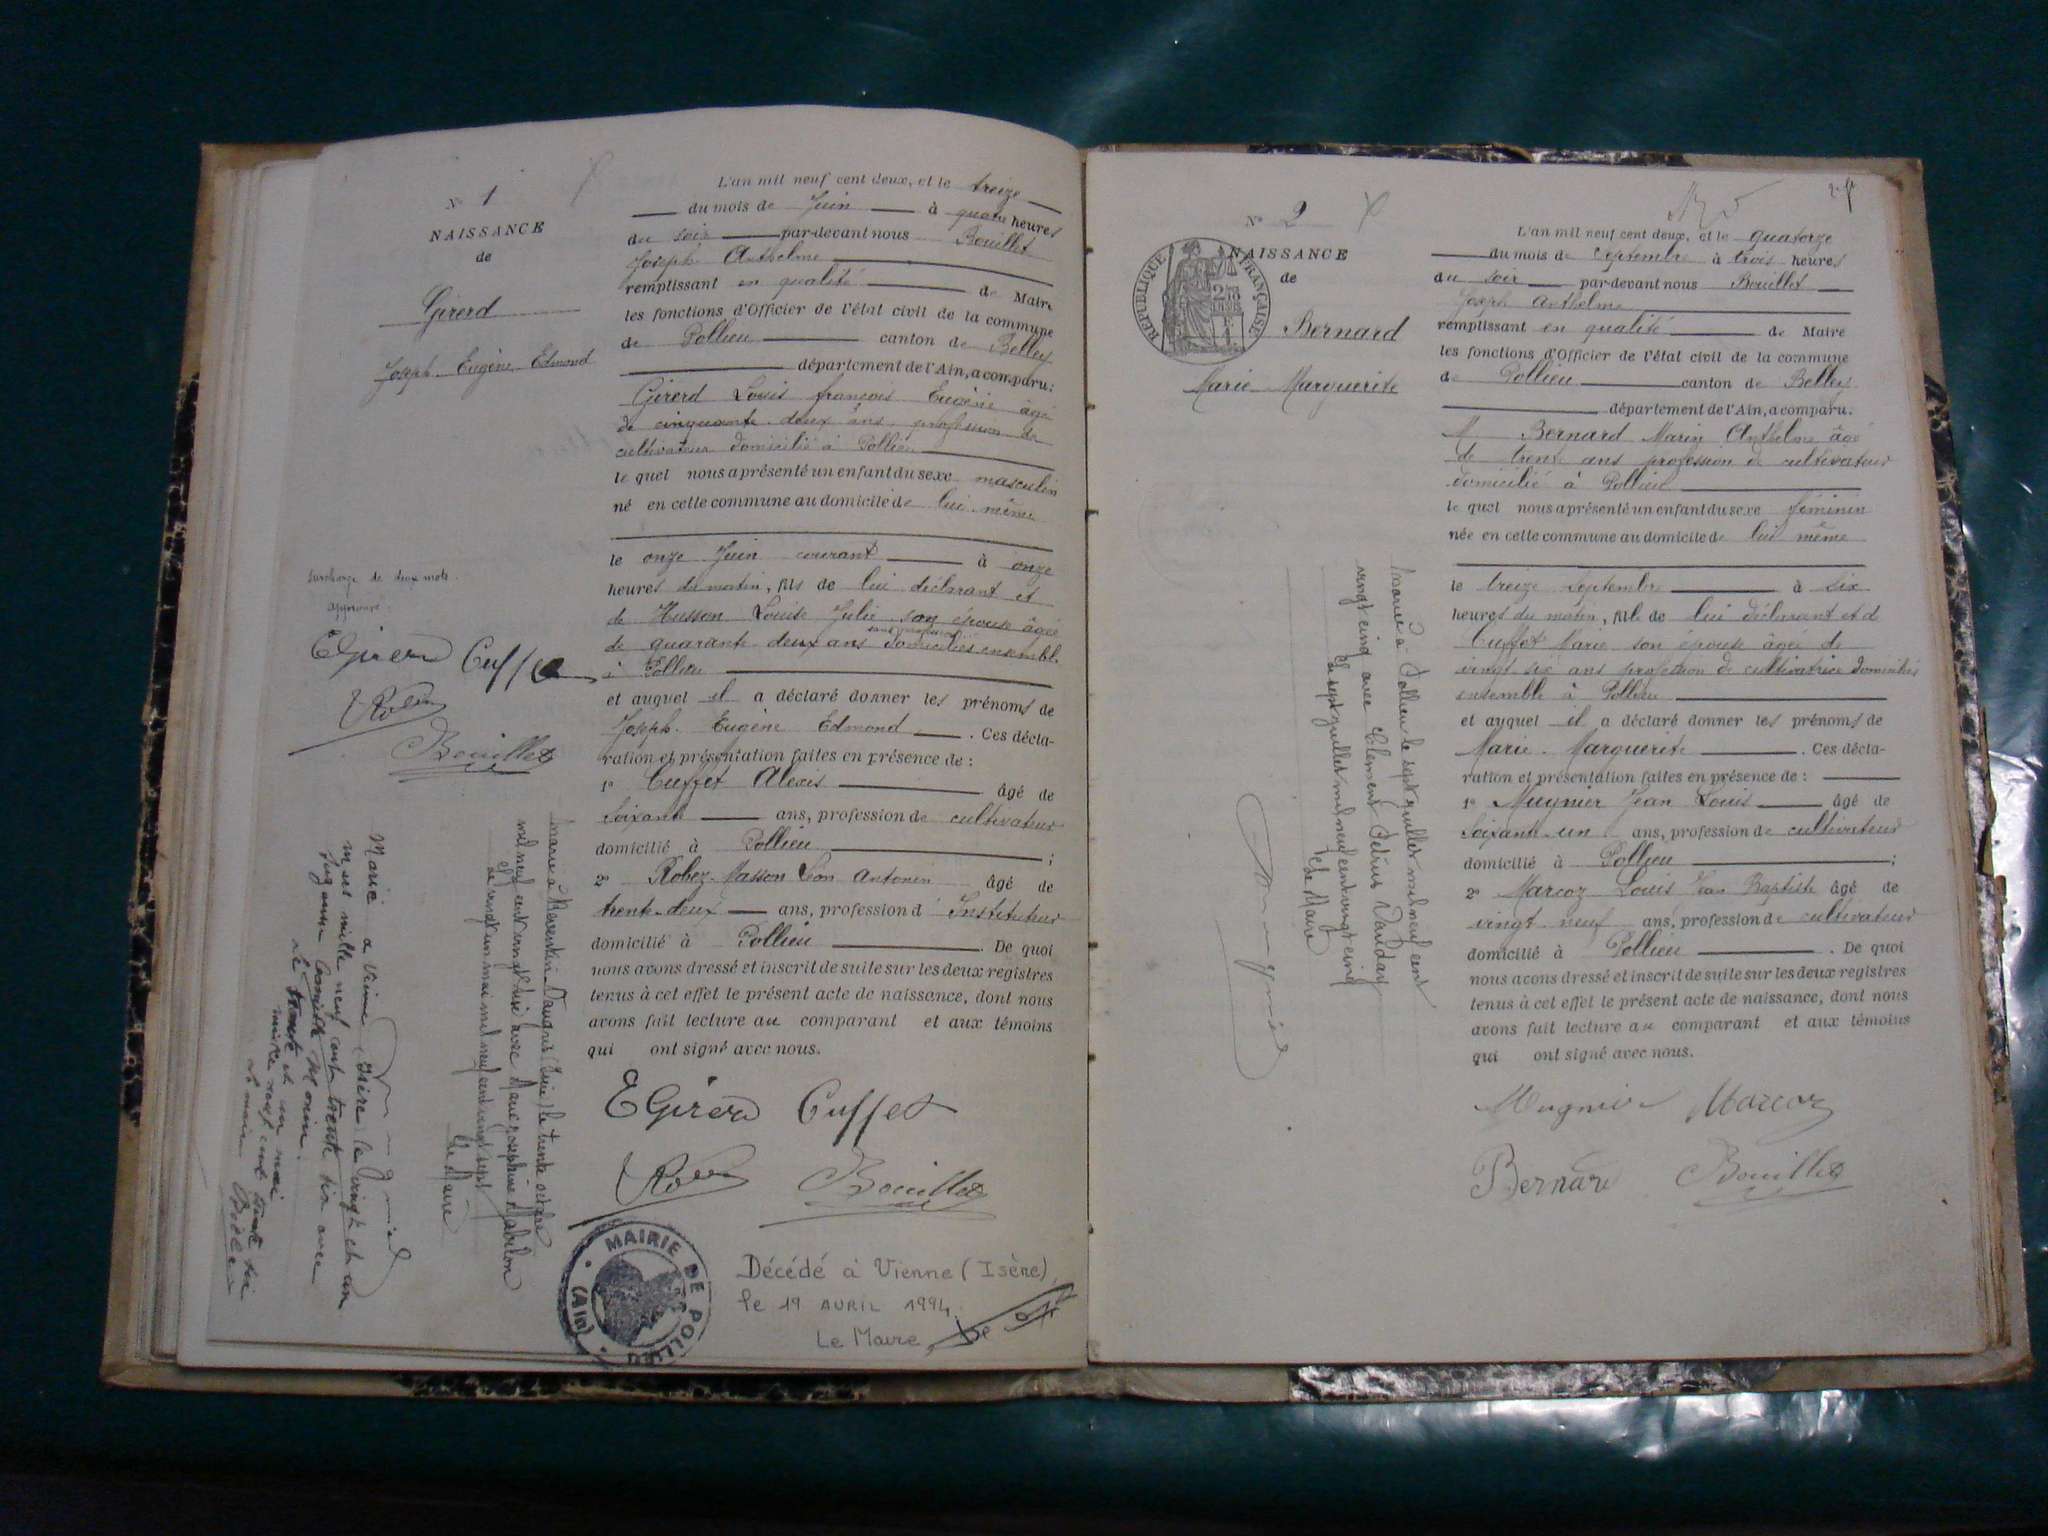 N° 1
NAISSANCE
de
Girerd
Joseph Eugène Edmond
L'an mil neuf cent deux, et le treize
du mois de Juin à quatre heures
du soir par-devant nous Bouillet
Joseph Anthelme
remplissant en qualité de Maire
les fonctions d'Officier de l'état civil de la commune
de Pollieu canton de Belley
département de l'Ain, a comparu:
Girerd Louis françois Eugène âgé
de cinquante deux ans profession de
cultivateur domicilié à Pollieu
le quel nous a présenté un enfant du sexe masculin
né en cette commune au domicile de lui même
le onze Juin courant à onze
heures du matin, fils de lui déclarant et
de Husson Louise Julie son épouse âgée
de quarante deux ans sans profession domiciliés ensemble
à Pollieu
et auquel il a déclaré donner les prénoms de
Joseph Eugène Edmond . Ces décla-
ration et présentation faites en présence de :
1° Cuffet Alexis âgé de
soixante ans, profession de cultivateur
domicilié à Pollieu ;
2° Robez-Masson Léon Antonin âgé de
trente-deux ans, profession d'Instituteur
domicilié à Pollieu . De quoi
nous avons dressé et inscrit de suite sur les deux registres
tenus à cet effet le présent acte de naissance, dont nous
avons fait lecture au comparant et aux témoins
qui ont signé avec nous.
EGirerd Cuffet
Bouillet
Surcharge de deux mots
approuvé
EGirerd Cuffet
Bouillet
Marié à Reventin Vaugris (Isère) le trente octobre
mil neuf cent vingt six avec Marie Joséphine Habilon
Le vingt un mai mil neuf cent vingt sept
Le Maire
Marié à Vienne (Isère) le vingt et un
mars mille neuf cent trente six avec
Suzanne Camille Monin.
Le trente et un mai
mille neuf cent trente six
Le maire
MAIRIE DE POLLIEU
(Ain)
Décédé à Vienne (Isère)
le 19 AVRIL 1994.
Le Maire
N° 2
NAISSANCE
de
RÉPUBLIQUE FRANÇAISE
Bernard
Marie Marguerite
L'an mil neuf cent deux, et le quatorze
du mois de Septembre à trois heures
du soir par-devant nous Bouillet
Joseph Anthelme
remplissant en qualité de Maire
les fonctions d'Officier de l'état civil de la commune
de Pollieu canton de Belley
département de l'Ain, a comparu.
M Bernard Marin Anthelme âgé
de trente ans profession de cultivateur
domicilié à Pollieu
le quel nous a présenté un enfant du sexe féminin
née en cette commune au domicile de lui même
le treize septembre à six
heures du matin, fille de lui déclarant et de
Cuffet Marie son épouse âgée de
vingt six ans profession de cultivatrice domiciliés
ensemble à Pollieu
et auquel il a déclaré donner les prénoms de
Marie Marguerite . Ces décla-
ration et présentation faites en présence de :
1° Mugnier Jean Louis âgé de
soixante un ans, profession de cultivateur
domicilié à Pollieu ;
2° Marcoz Louis Jean Baptiste âgé de
vingt neuf ans, profession de cultivateur
domicilié à Pollieu . De quoi
nous avons dressé et inscrit de suite sur les deux registres
tenus à cet effet le présent acte de naissance, dont nous
avons fait lecture au comparant et aux témoins
qui ont signé avec nous.
Mugnier Marcoz
Bernard Bouillet
Mariée à Pollieu le sept juillet mil neuf cent
vingt cinq avec Clément Vauday
Le sept juillet mil neuf cent vingt cinq
Le Maire